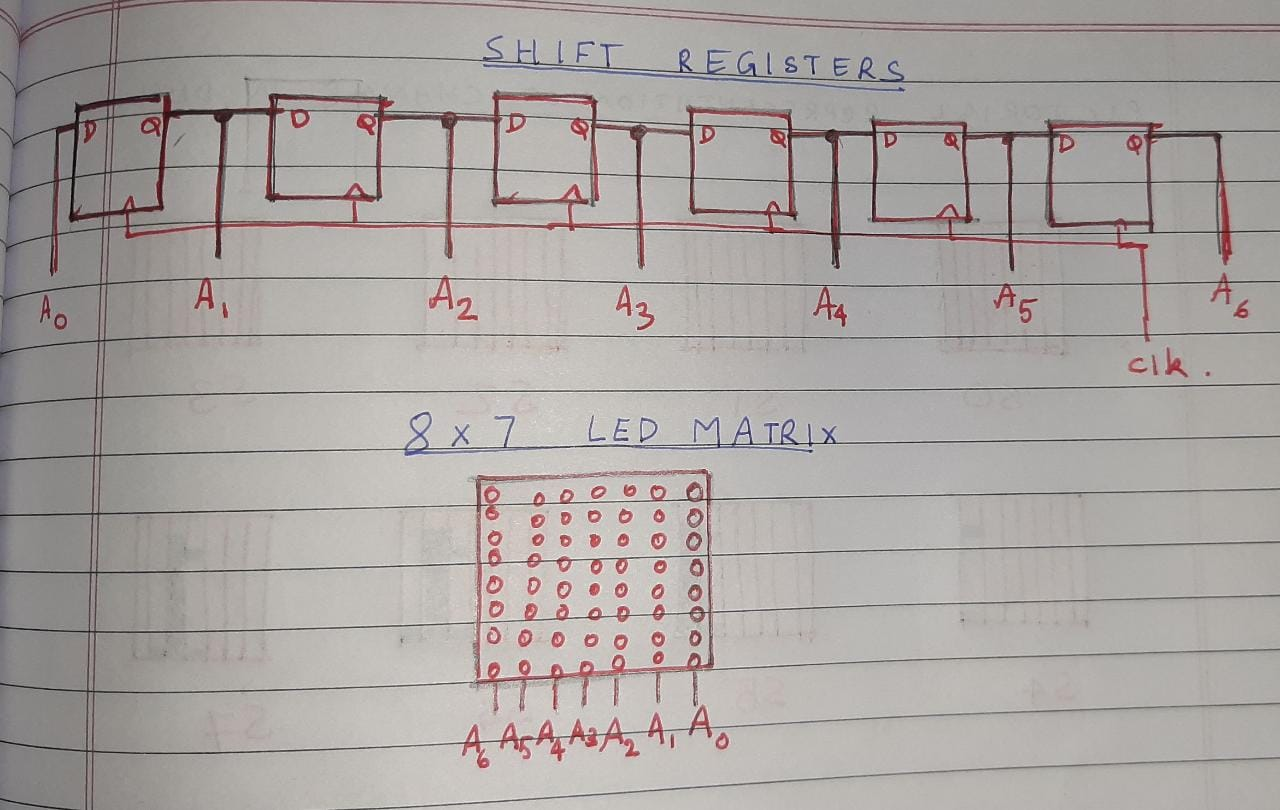 SHIFT REGISTERS
D Q D Q D Q D Q D Q D Q
A0 A1 A2 A3 A4 A5 A6
clk.
8 x 7 LED MATRIX
A6 A5 A4 A3 A2 A1 A0